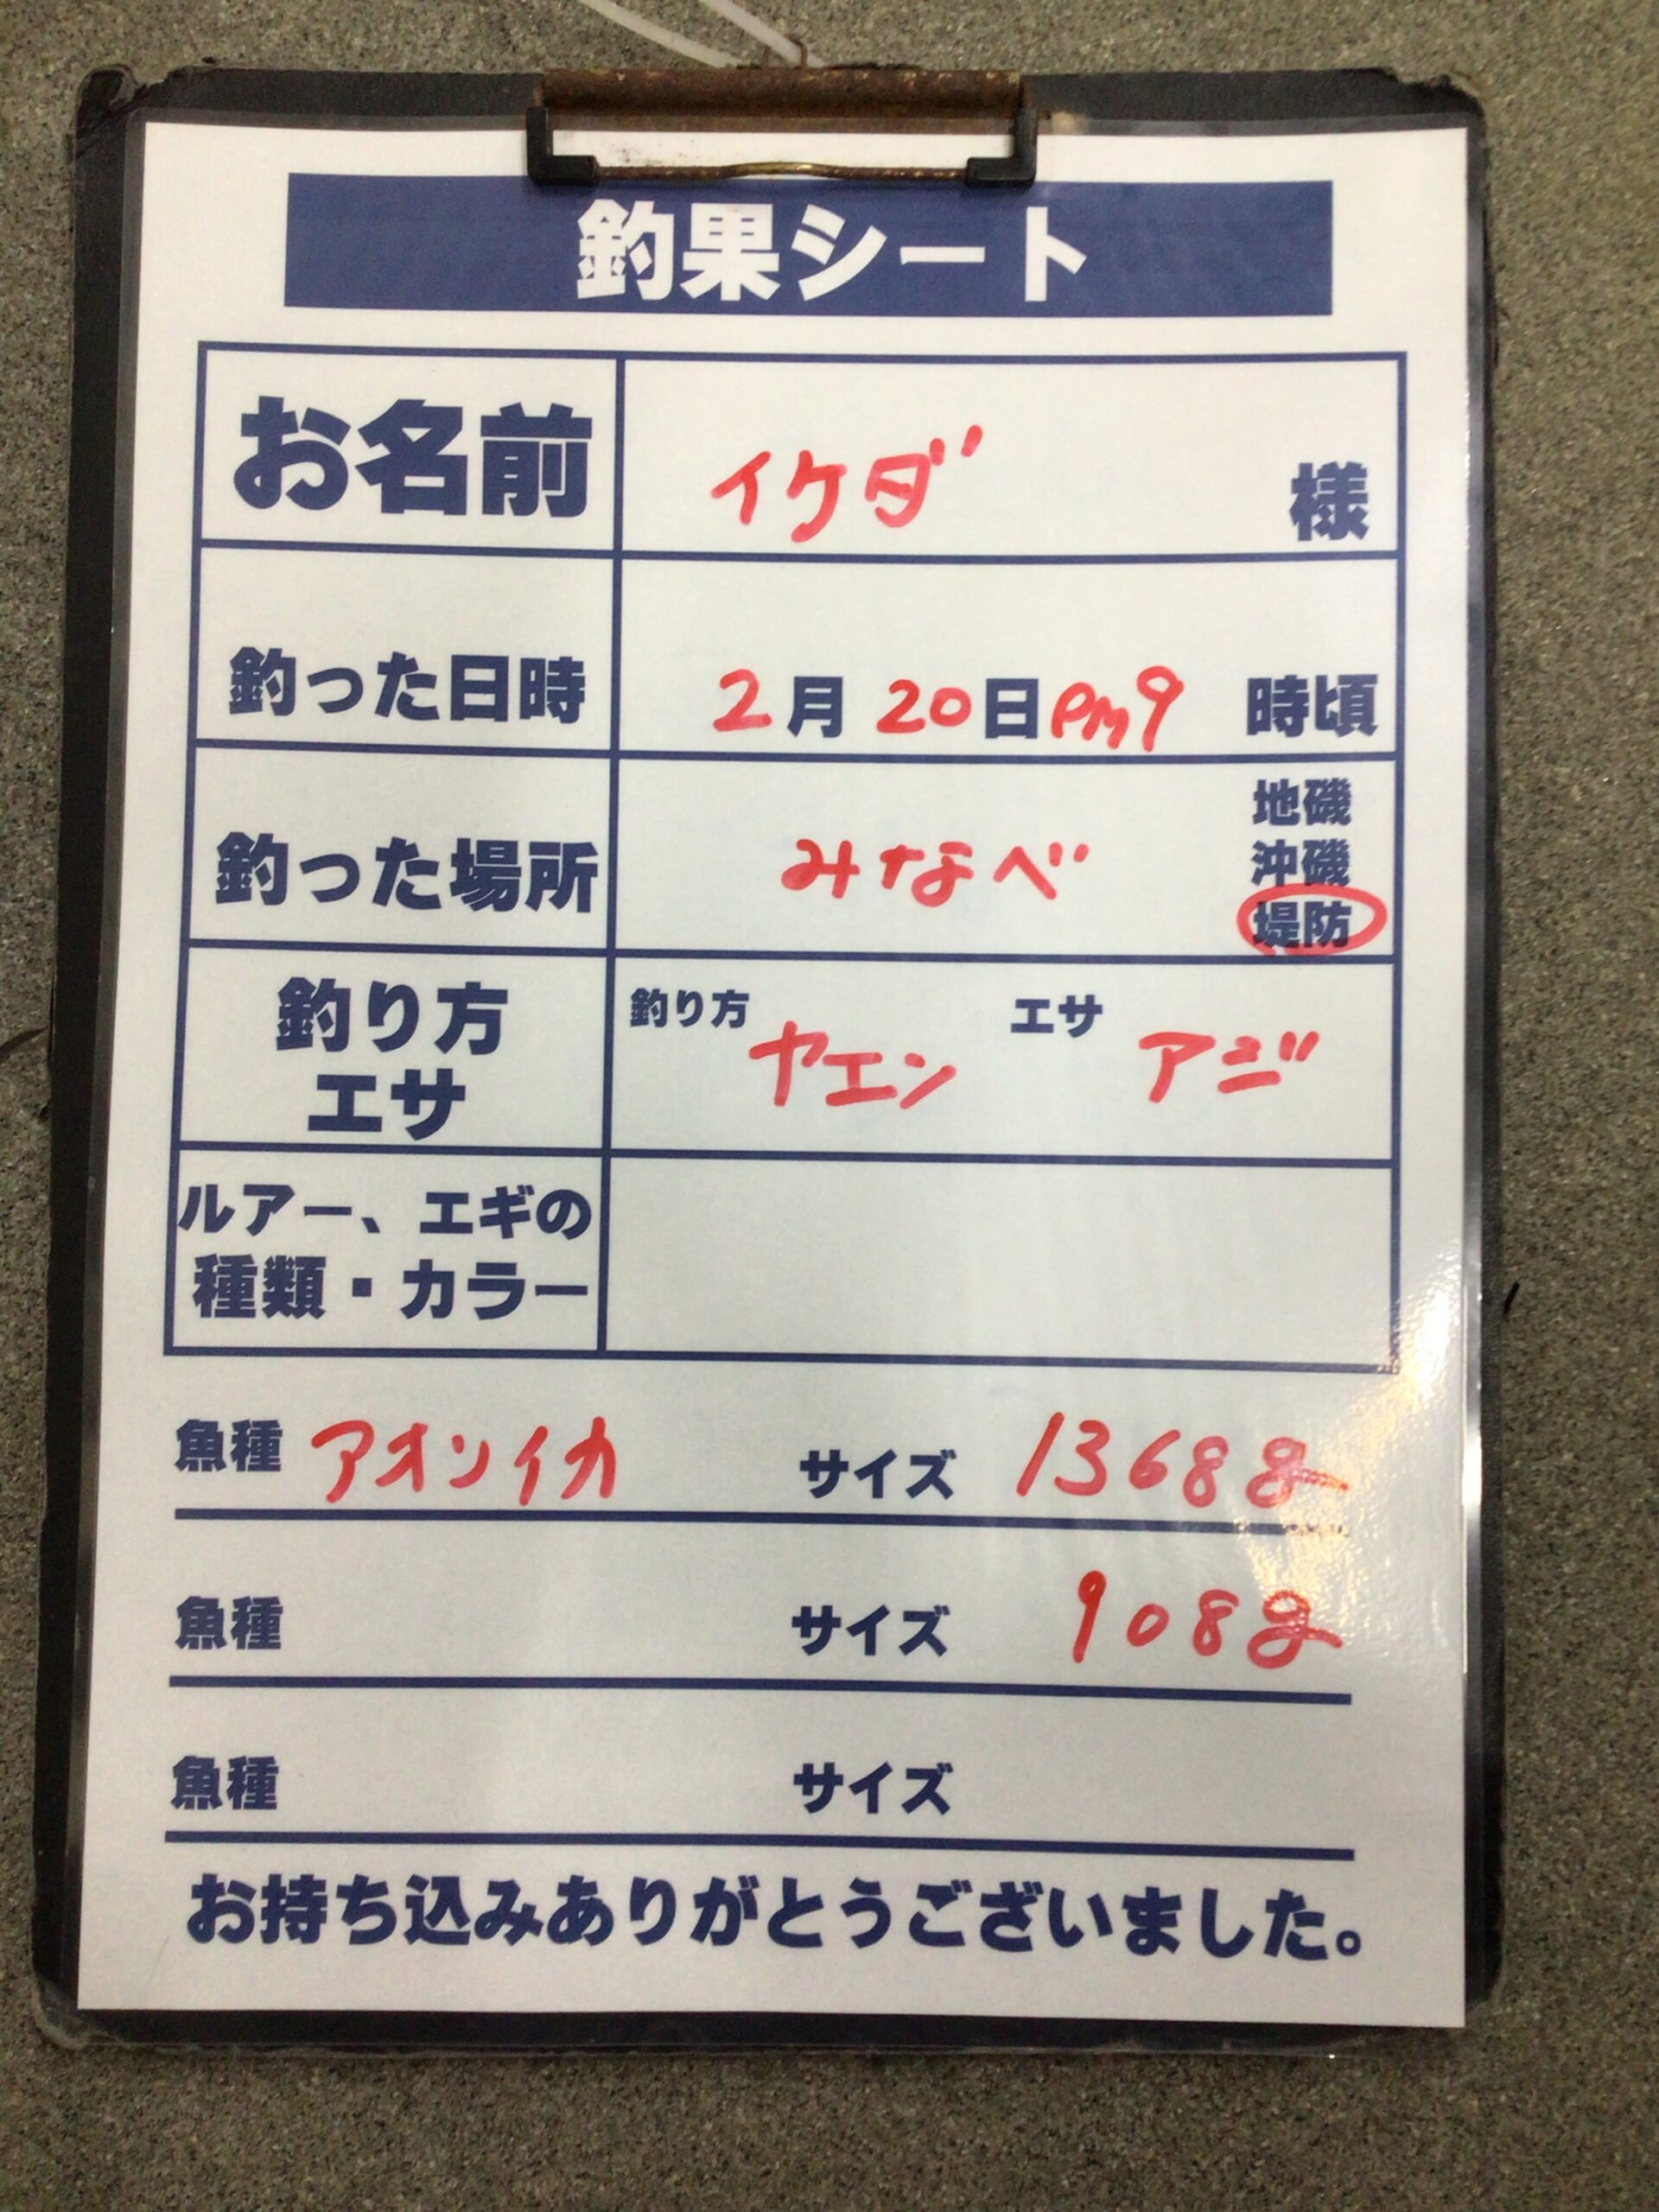 釣果シート
お名前 イケダ 様
釣った日時 2月20日pm9時頃
地磯
釣った場所 みなべ 沖磯
堤防
釣り方 釣り方 ヤエン エサ アジ
エサ
ルアー、エギの
種類・カラー
魚種 アオリイカ サイズ 1368g
魚種 サイズ 908g
魚種 サイズ
お持ち込みありがとうございました。